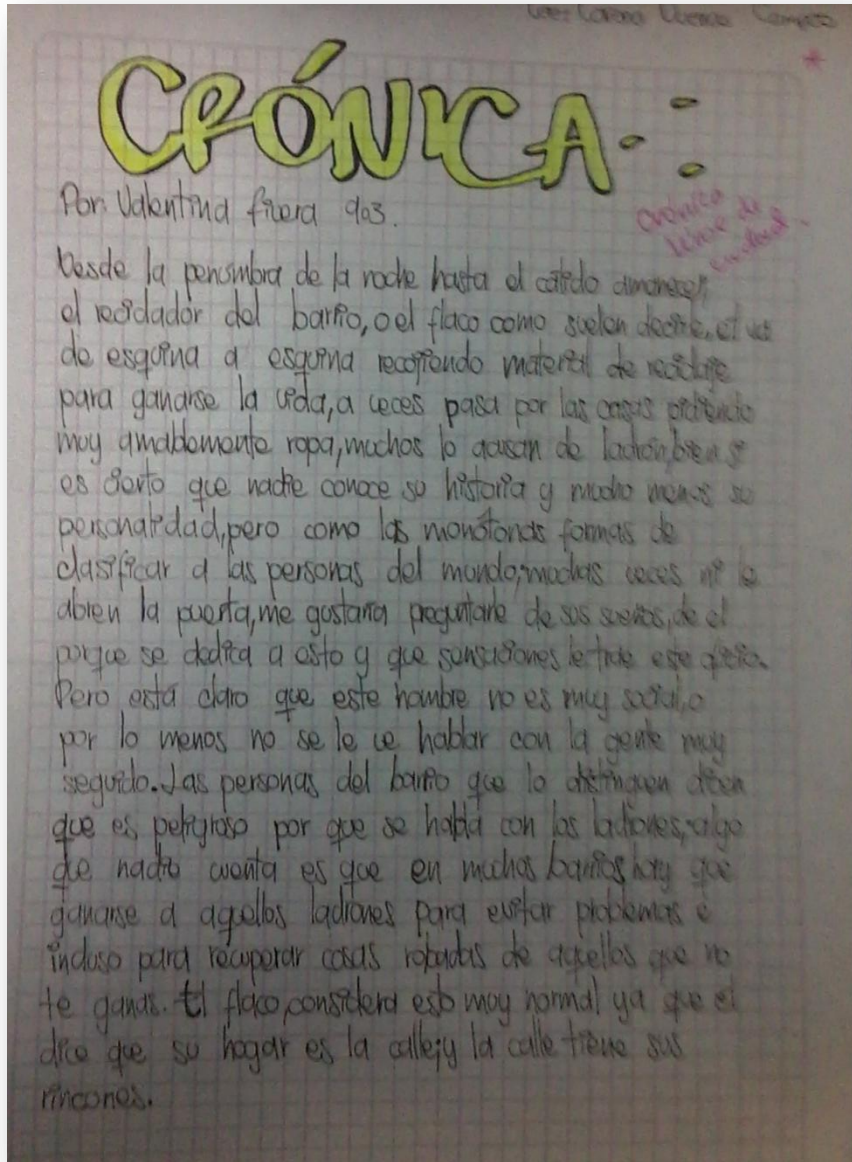 CRÓNICA
Por: Valentina fivera 903.
Crónica
Desde la penumbra de la noche hasta el calido amanecer,
el reciclador del barrio, o el flaco como suelen decirle, el va
de esquina a esquina recojiendo material de reciclaje
para ganarse la vida, a veces pasa por las casas pidiendo
muy amablemente ropa, muchos lo acusan de ladrón, bien si
es cierto que nadie conoce su historia y mucho menos su
personalidad, pero como las monótonas formas de
clasificar a las personas del mundo, muchas veces ni le
abren la puerta, me gustaria preguntarle de sus sueños, de el
porque se dedica a esto y que sensaciones le trae este oficio.
Pero está claro que este hombre no es muy social, o
por lo menos no se le ve hablar con la gente muy
seguido. Las personas del barrio que lo distinguen dicen
que es peligroso por que se habla con los ladrones, algo
que nadie cuenta es que en muchos barrios hay que
ganarse a aquellos ladrones para evitar problemas e
incluso para recuperar cosas robadas de aquellos que no
te ganas. El flaco considera esto muy normal ya que el
dice que su hogar es la calle, y la calle tiene sus
rincones.